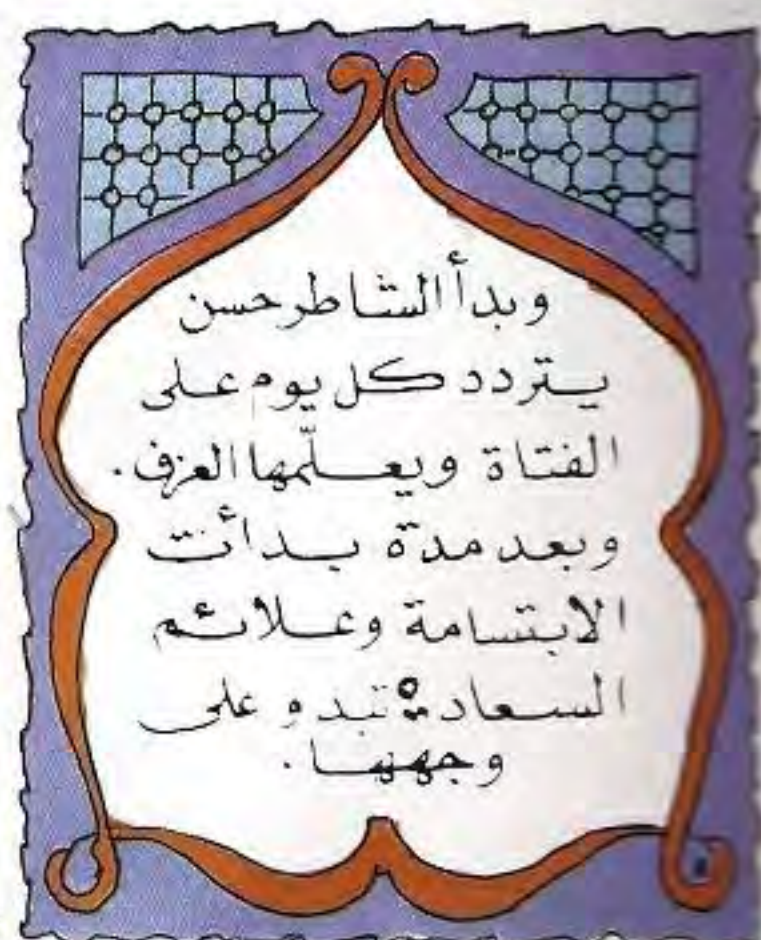 وبدأ الشاطر حسن
يتردد كل يوم على
الفتاة ويعلّمها العزف.
وبعد مدة بدأت
الابتسامة وعلائم
السعادة تبدو على
وجهها.